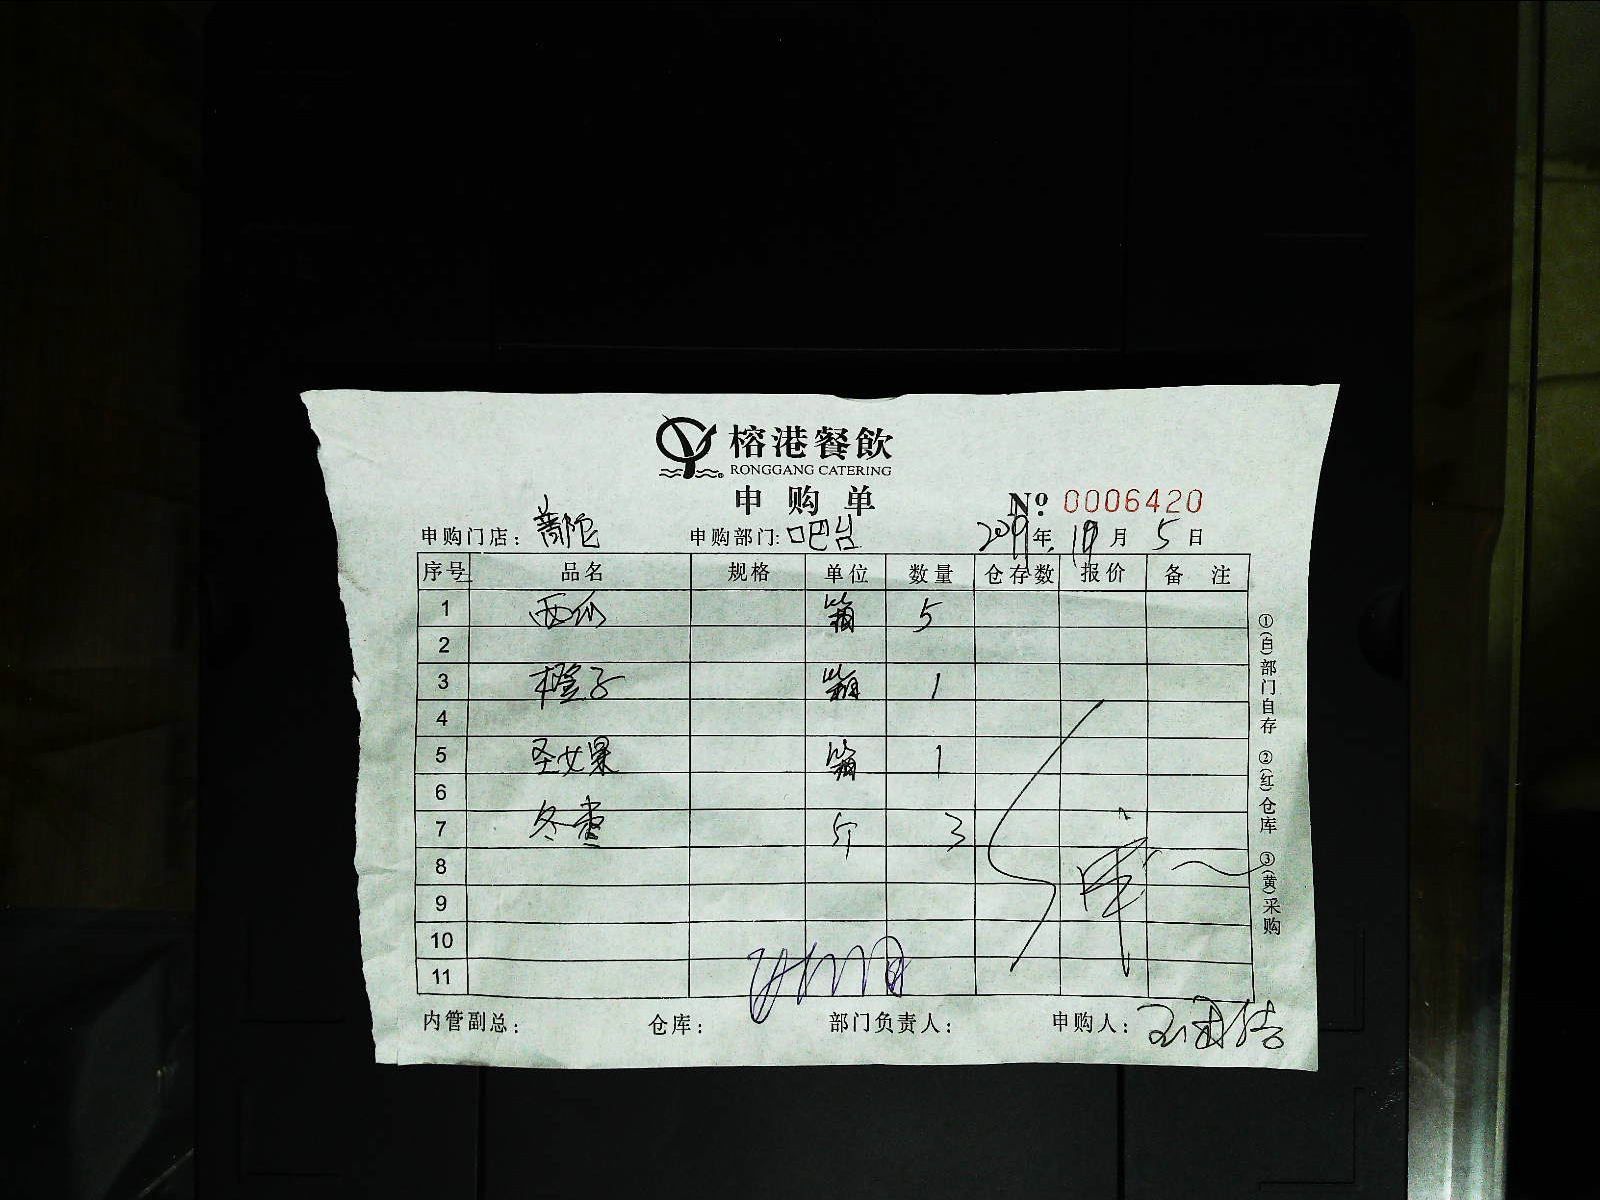 榕港餐飲
RONGGANG CATERING
申购单
№ 0006420
申购门店：普陀 申购部门:吧台 2019年10月5日
序号 品名 规格 单位 数量 仓存数 报价 备注
1 西瓜 箱 5
2
3 橙子 箱 1
4
5 圣女果 箱 1
6
7 冬枣 斤 3
8
9
10
11
内管副总： 仓库： 部门负责人： 申购人：
①(白)部门自存 ②(红)仓库 ③(黄)采购